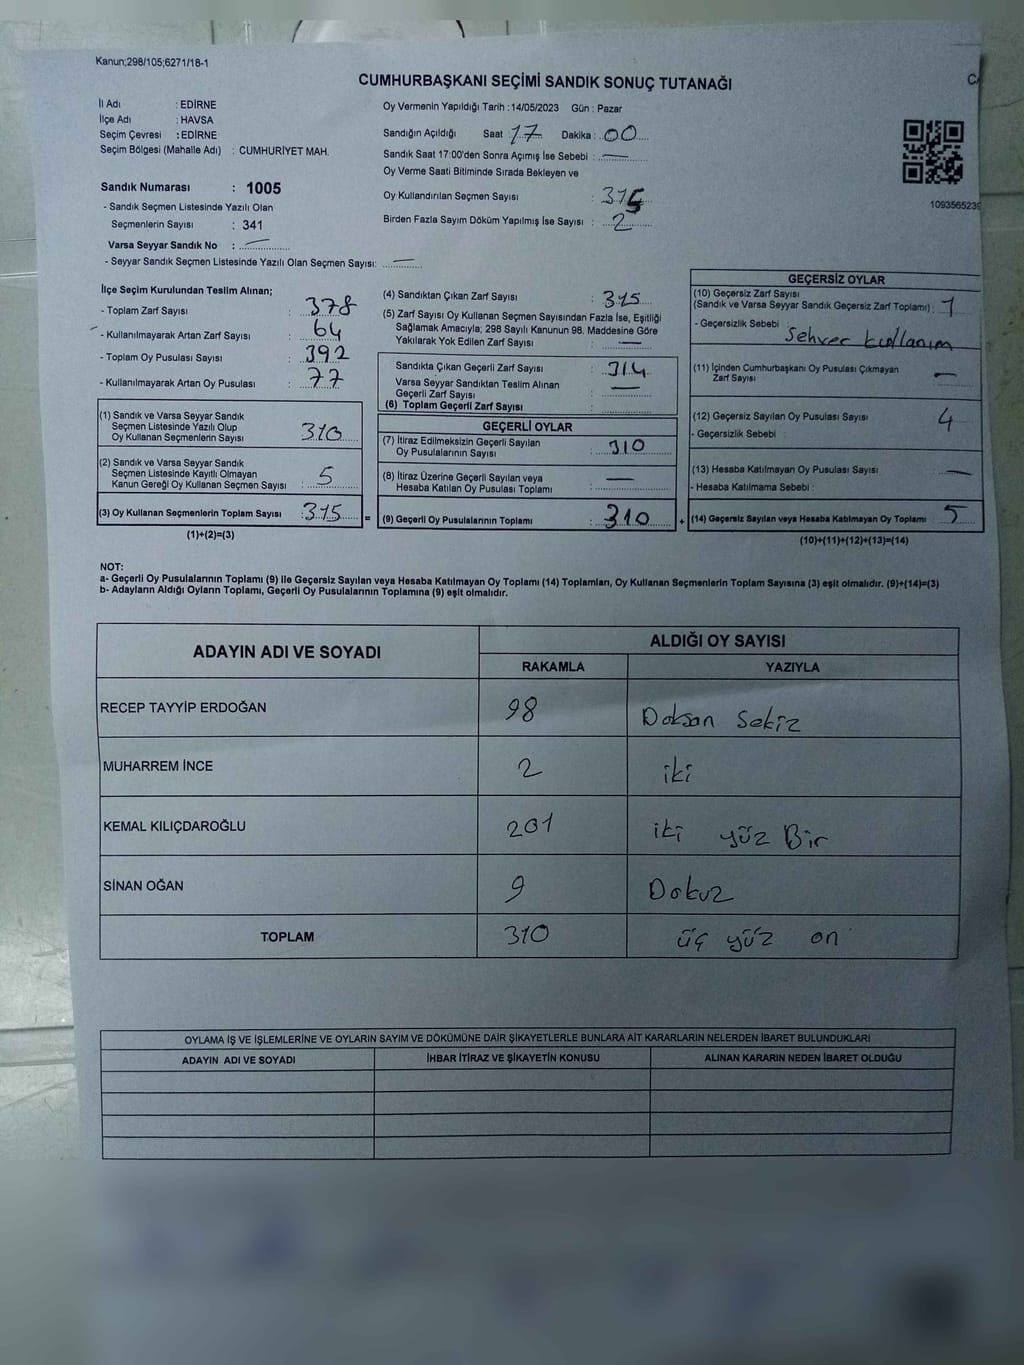 Kanun;298/105;6271/18-1
CUMHURBAŞKANI SEÇİMİ SANDIK SONUÇ TUTANAĞI
İl Adı : EDİRNE
İlçe Adı : HAVSA
Seçim Çevresi : EDİRNE
Seçim Bölgesi (Mahalle Adı) : CUMHURİYET MAH.
Sandık Numarası : 1005
- Sandık Seçmen Listesinde Yazılı Olan
Seçmenlerin Sayısı : 341
Varsa Seyyar Sandık No :
- Seyyar Sandık Seçmen Listesinde Yazılı Olan Seçmen Sayısı:
Oy Vermenin Yapıldığı Tarih :14/05/2023 Gün : Pazar
Sandığın Açıldığı Saat 17 Dakika : 00
Sandık Saat 17:00'den Sonra Açımış İse Sebebi : —
Oy Verme Saati Bitiminde Sırada Bekleyen ve
Oy Kullandırılan Seçmen Sayısı : 315
Birden Fazla Sayım Döküm Yapılmış İse Sayısı : 2
1093565239
İlçe Seçim Kurulundan Teslim Alınan;
- Toplam Zarf Sayısı : 378
- Kullanılmayarak Artan Zarf Sayısı : 64
- Toplam Oy Pusulası Sayısı : 392
- Kullanılmayarak Artan Oy Pusulası : 77
(1) Sandık ve Varsa Seyyar Sandık
Seçmen Listesinde Yazılı Olup
Oy Kullanan Seçmenlerin Sayısı 310
(2) Sandık ve Varsa Seyyar Sandık
Seçmen Listesinde Kayıtlı Olmayan
Kanun Gereği Oy Kullanan Seçmen Sayısı : 5
(3) Oy Kullanan Seçmenlerin Toplam Sayısı : 315 =
(1)+(2)=(3)
(4) Sandıktan Çıkan Zarf Sayısı : 315
(5) Zarf Sayısı Oy Kullanan Seçmen Sayısından Fazla İse, Eşitliği
Sağlamak Amacıyla; 298 Sayılı Kanunun 98. Maddesine Göre
Yakılarak Yok Edilen Zarf Sayısı : —
Sandıkta Çıkan Geçerli Zarf Sayısı : 314
Varsa Seyyar Sandıktan Teslim Alınan
Geçerli Zarf Sayısı : —
(6) Toplam Geçerli Zarf Sayısı :
GEÇERLİ OYLAR
(7) İtiraz Edilmeksizin Geçerli Sayılan
Oy Pusulalarının Sayısı : 310
(8) İtiraz Üzerine Geçerli Sayılan veya
Hesaba Katılan Oy Pusulası Toplamı : —
(9) Geçerli Oy Pusulalarının Toplamı : 310 +
GEÇERSİZ OYLAR
(10) Geçersiz Zarf Sayısı
(Sandık ve Varsa Seyyar Sandık Geçersiz Zarf Toplamı) : 1
- Geçersizlik Sebebi : Sehven kullanım
(11) İçinden Cumhurbaşkanı Oy Pusulası Çıkmayan
Zarf Sayısı —
(12) Geçersiz Sayılan Oy Pusulası Sayısı 4
- Geçersizlik Sebebi :
(13) Hesaba Katılmayan Oy Pusulası Sayısı —
- Hesaba Katılmama Sebebi :
(14) Geçersiz Sayılan veya Hesaba Katılmayan Oy Toplamı 5
(10)+(11)+(12)+(13)=(14)
NOT:
a- Geçerli Oy Pusulalarının Toplamı (9) ile Geçersiz Sayılan veya Hesaba Katılmayan Oy Toplamı (14) Toplamları, Oy Kullanan Seçmenlerin Toplam Sayısına (3) eşit olmalıdır. (9)+(14)=(3)
b- Adayların Aldığı Oyların Toplamı, Geçerli Oy Pusulalarının Toplamına (9) eşit olmalıdır.
ADAYIN ADI VE SOYADI ALDIĞI OY SAYISI
RAKAMLA YAZIYLA
RECEP TAYYİP ERDOĞAN 98 Doksan Sekiz
MUHARREM İNCE 2 iki
KEMAL KILIÇDAROĞLU 201 iki yüz Bir
SİNAN OĞAN 9 Dokuz
TOPLAM 310 üç yüz on
OYLAMA İŞ VE İŞLEMLERİNE VE OYLARIN SAYIM VE DÖKÜMÜNE DAİR ŞİKAYETLERLE BUNLARA AİT KARARLARIN NELERDEN İBARET BULUNDUKLARI
ADAYIN ADI VE SOYADI İHBAR İTİRAZ VE ŞİKAYETİN KONUSU ALINAN KARARIN NEDEN İBARET OLDUĞU